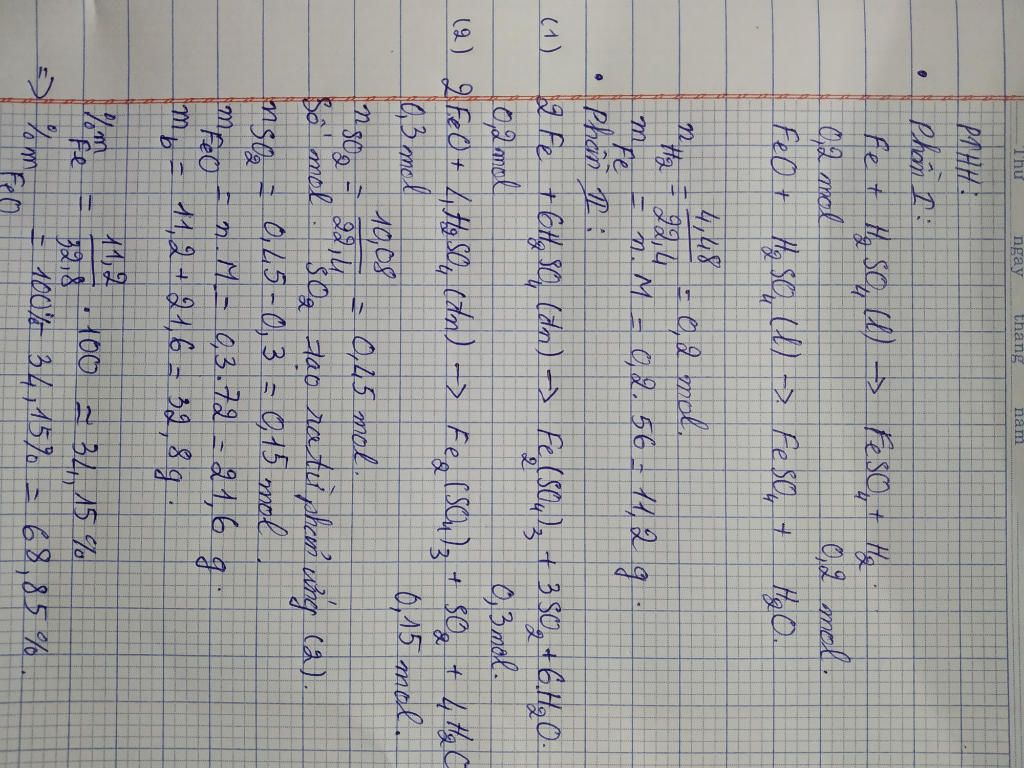 Thứ ngày tháng năm
PTHH:
• Phần I:
Fe + H2SO4(l) → FeSO4 + H2.
0,2 mol 0,2 mol.
FeO + H2SO4(l) → FeSO4 + H2O.
nH2 = 4,48/22,4 = 0,2 mol.
mFe = n.M = 0,2.56 = 11,2 g.
• Phần II:
(1) 2Fe + 6H2SO4(đn) → Fe2(SO4)3 + 3SO2 + 6H2O.
0,2 mol 0,3 mol.
(2) 2FeO + 4H2SO4(đn) → Fe2(SO4)3 + SO2 + 4H2O
0,3 mol 0,15 mol.
nSO2 = 10,08/22,4 = 0,45 mol.
Số mol SO2 tạo ra từ phản ứng (2).
nSO2 = 0,45 - 0,3 = 0,15 mol.
mFeO = n.M = 0,3.72 = 21,6 g.
mb = 11,2 + 21,6 = 32,8 g.
%mFe = 11,2/32,8 . 100 ≈ 34,15%
⇒ %mFeO = 100% - 34,15% = 68,85%.